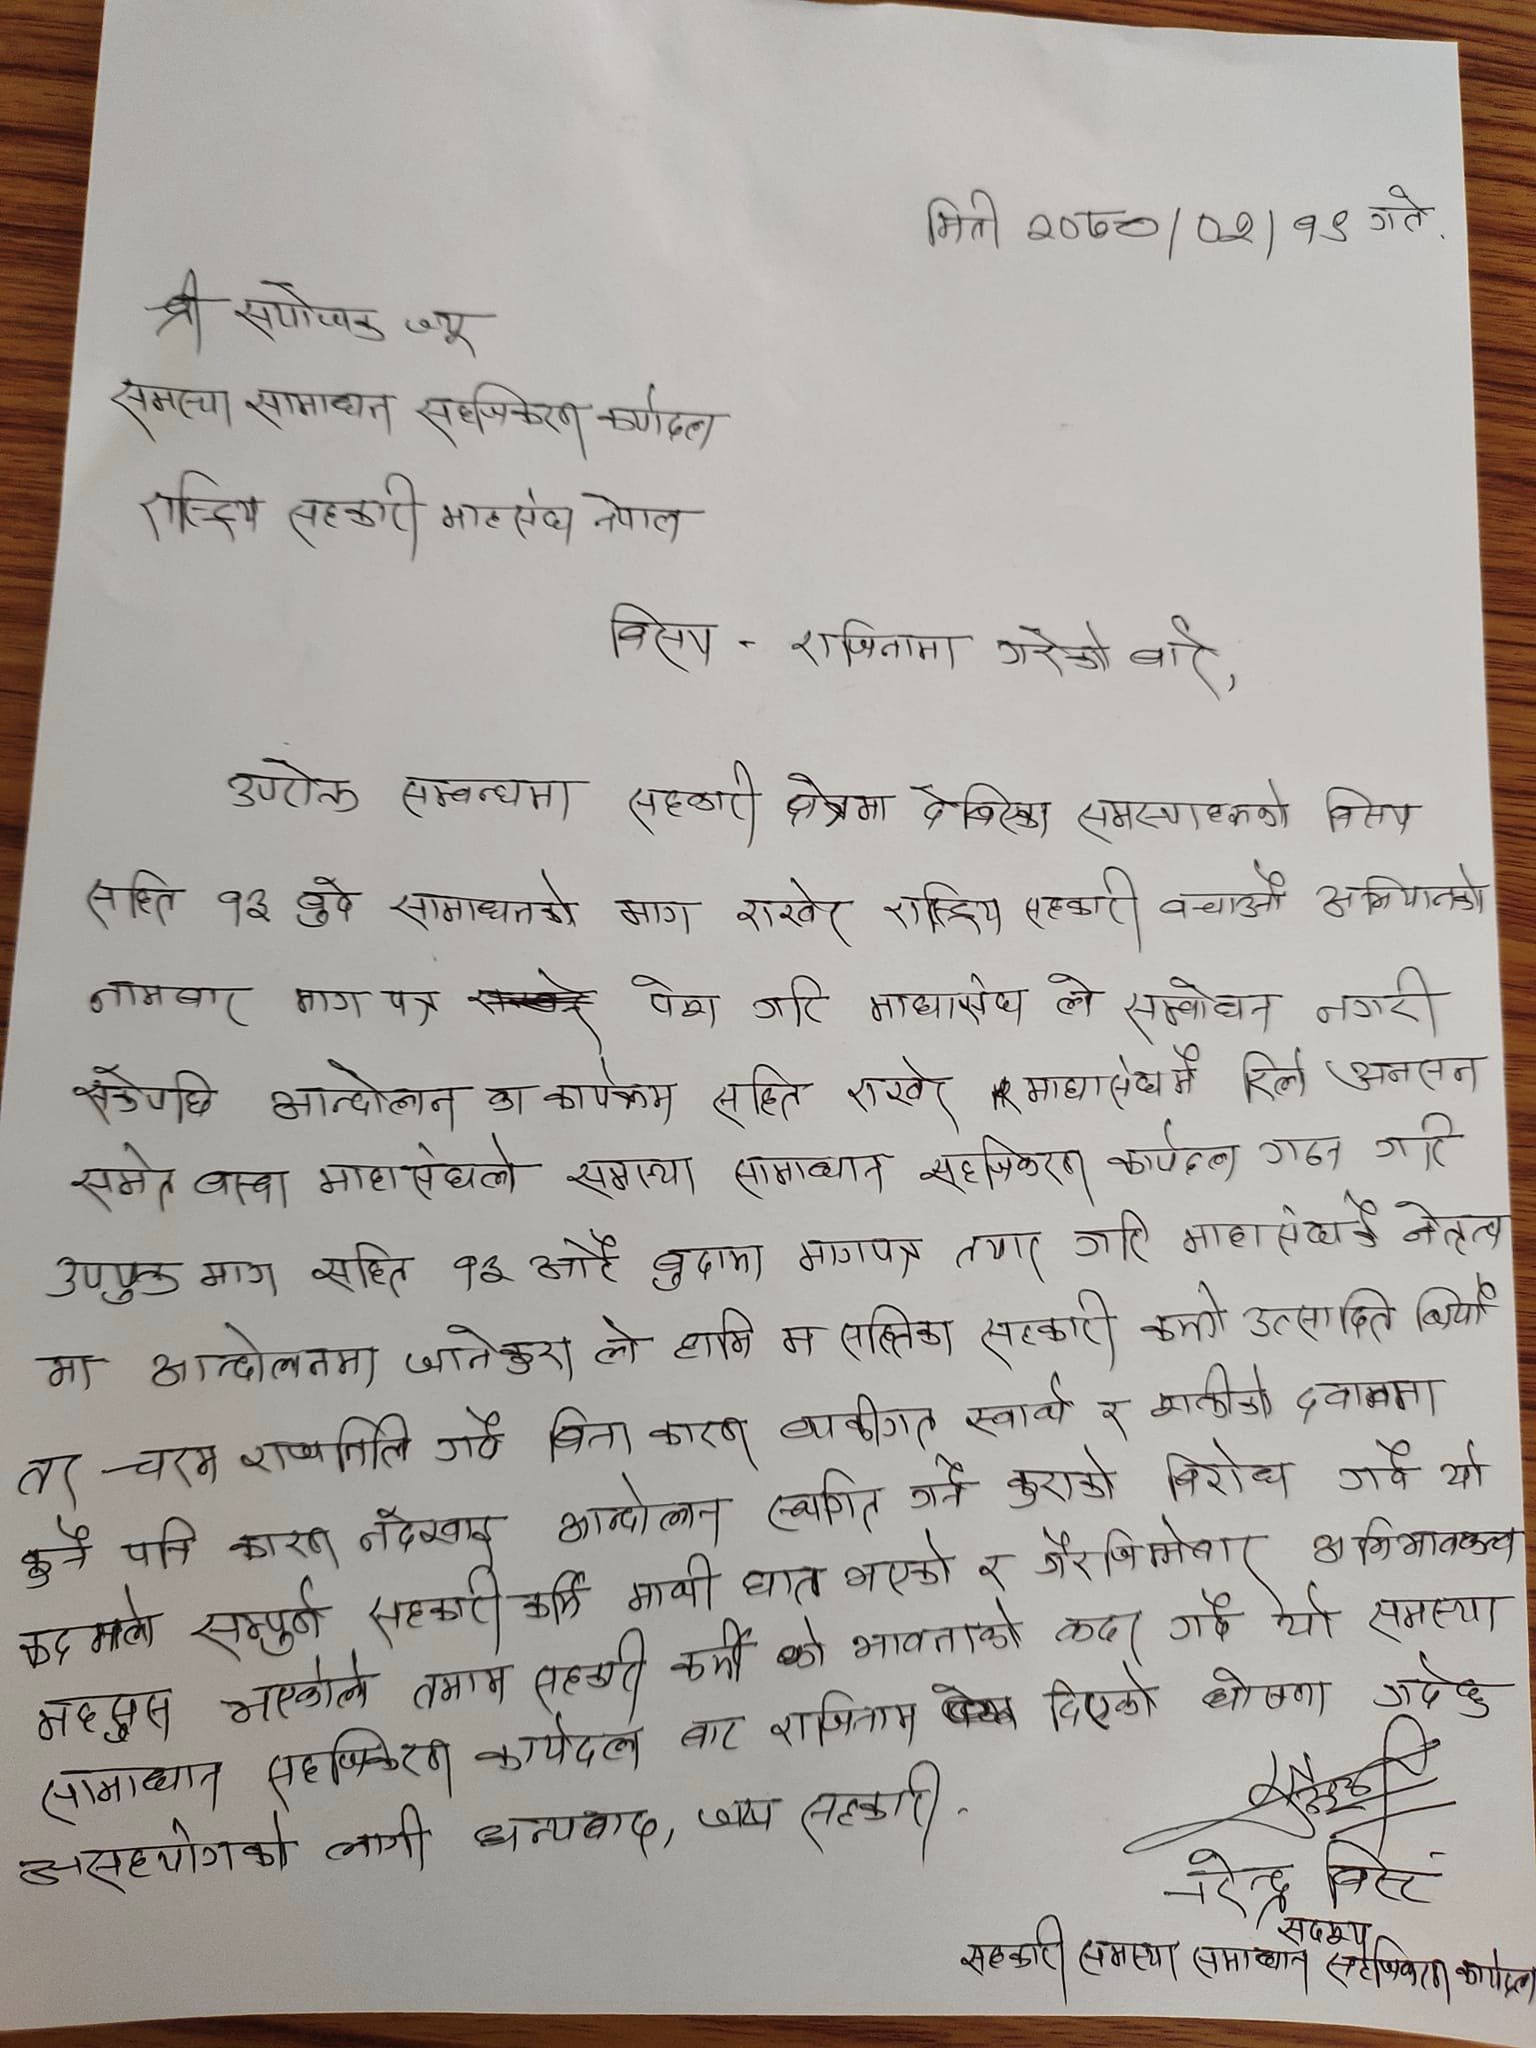 मिती २०८०/०२/१९ गते.
श्री संयोजक ज्यू
समस्या सामाधान सहजिकरण कार्यदल
राष्ट्रिय सहकारी माहसंघ नेपाल
बिसय - राजिनामा गरेको बारे,
उपरोक्त सम्बन्धमा सहकारी क्षेत्रमा देखिएका समस्याहरुको बिसय
सहित १३ बुदे सामाधानको माग राखेर राष्ट्रिय सहकारी बचाऔं अभियानको
नामबाट माग पत्र पेश गरि माहासंघ ले सम्बोधन नगरी
सकेपछि आन्दोलन का कार्यक्रम सहित राखेर माहासंघमै रिले अनसन
समेत बस्दा माहासंघले समस्या सामाधान सहजिकरण कार्यदल गठन गरि
उपयुक्त माग सहित १३ औटै बुदामा मागपत्र तयार गरि माहासंघकै नेतृत्व
मा आन्दोलनमा जानेकुरा ले हामि म सहितका सहकारी कर्मी उत्साहित थियौं
तर चरम राजनिति गर्दै बिना कारण ब्यक्तीगत स्वार्थ र शक्तीको दवाबमा
कुनै पनि कारण नदेखाइ आन्दोलन स्थगित गर्ने कुराको बिरोध गर्दै यो
कदमले सम्पुर्ण सहकारी कर्मि माथी घात भएको र गैरजिम्मेबार अभिभावकत्व
महसुस भएकोले तमाम सहकारी कर्मी को भावनाको कदर गर्दै यो समस्या
सामाधान सहजिकरण कार्यदल बाट राजिनाम दिएको घोषणा गर्दछु
सहयोगको लागी धन्यबाद, जय सहकारी.
नरेन्द्र बिस्ट
सदस्य
सहकारी समस्या समाधान सहजिकरण कार्यदल